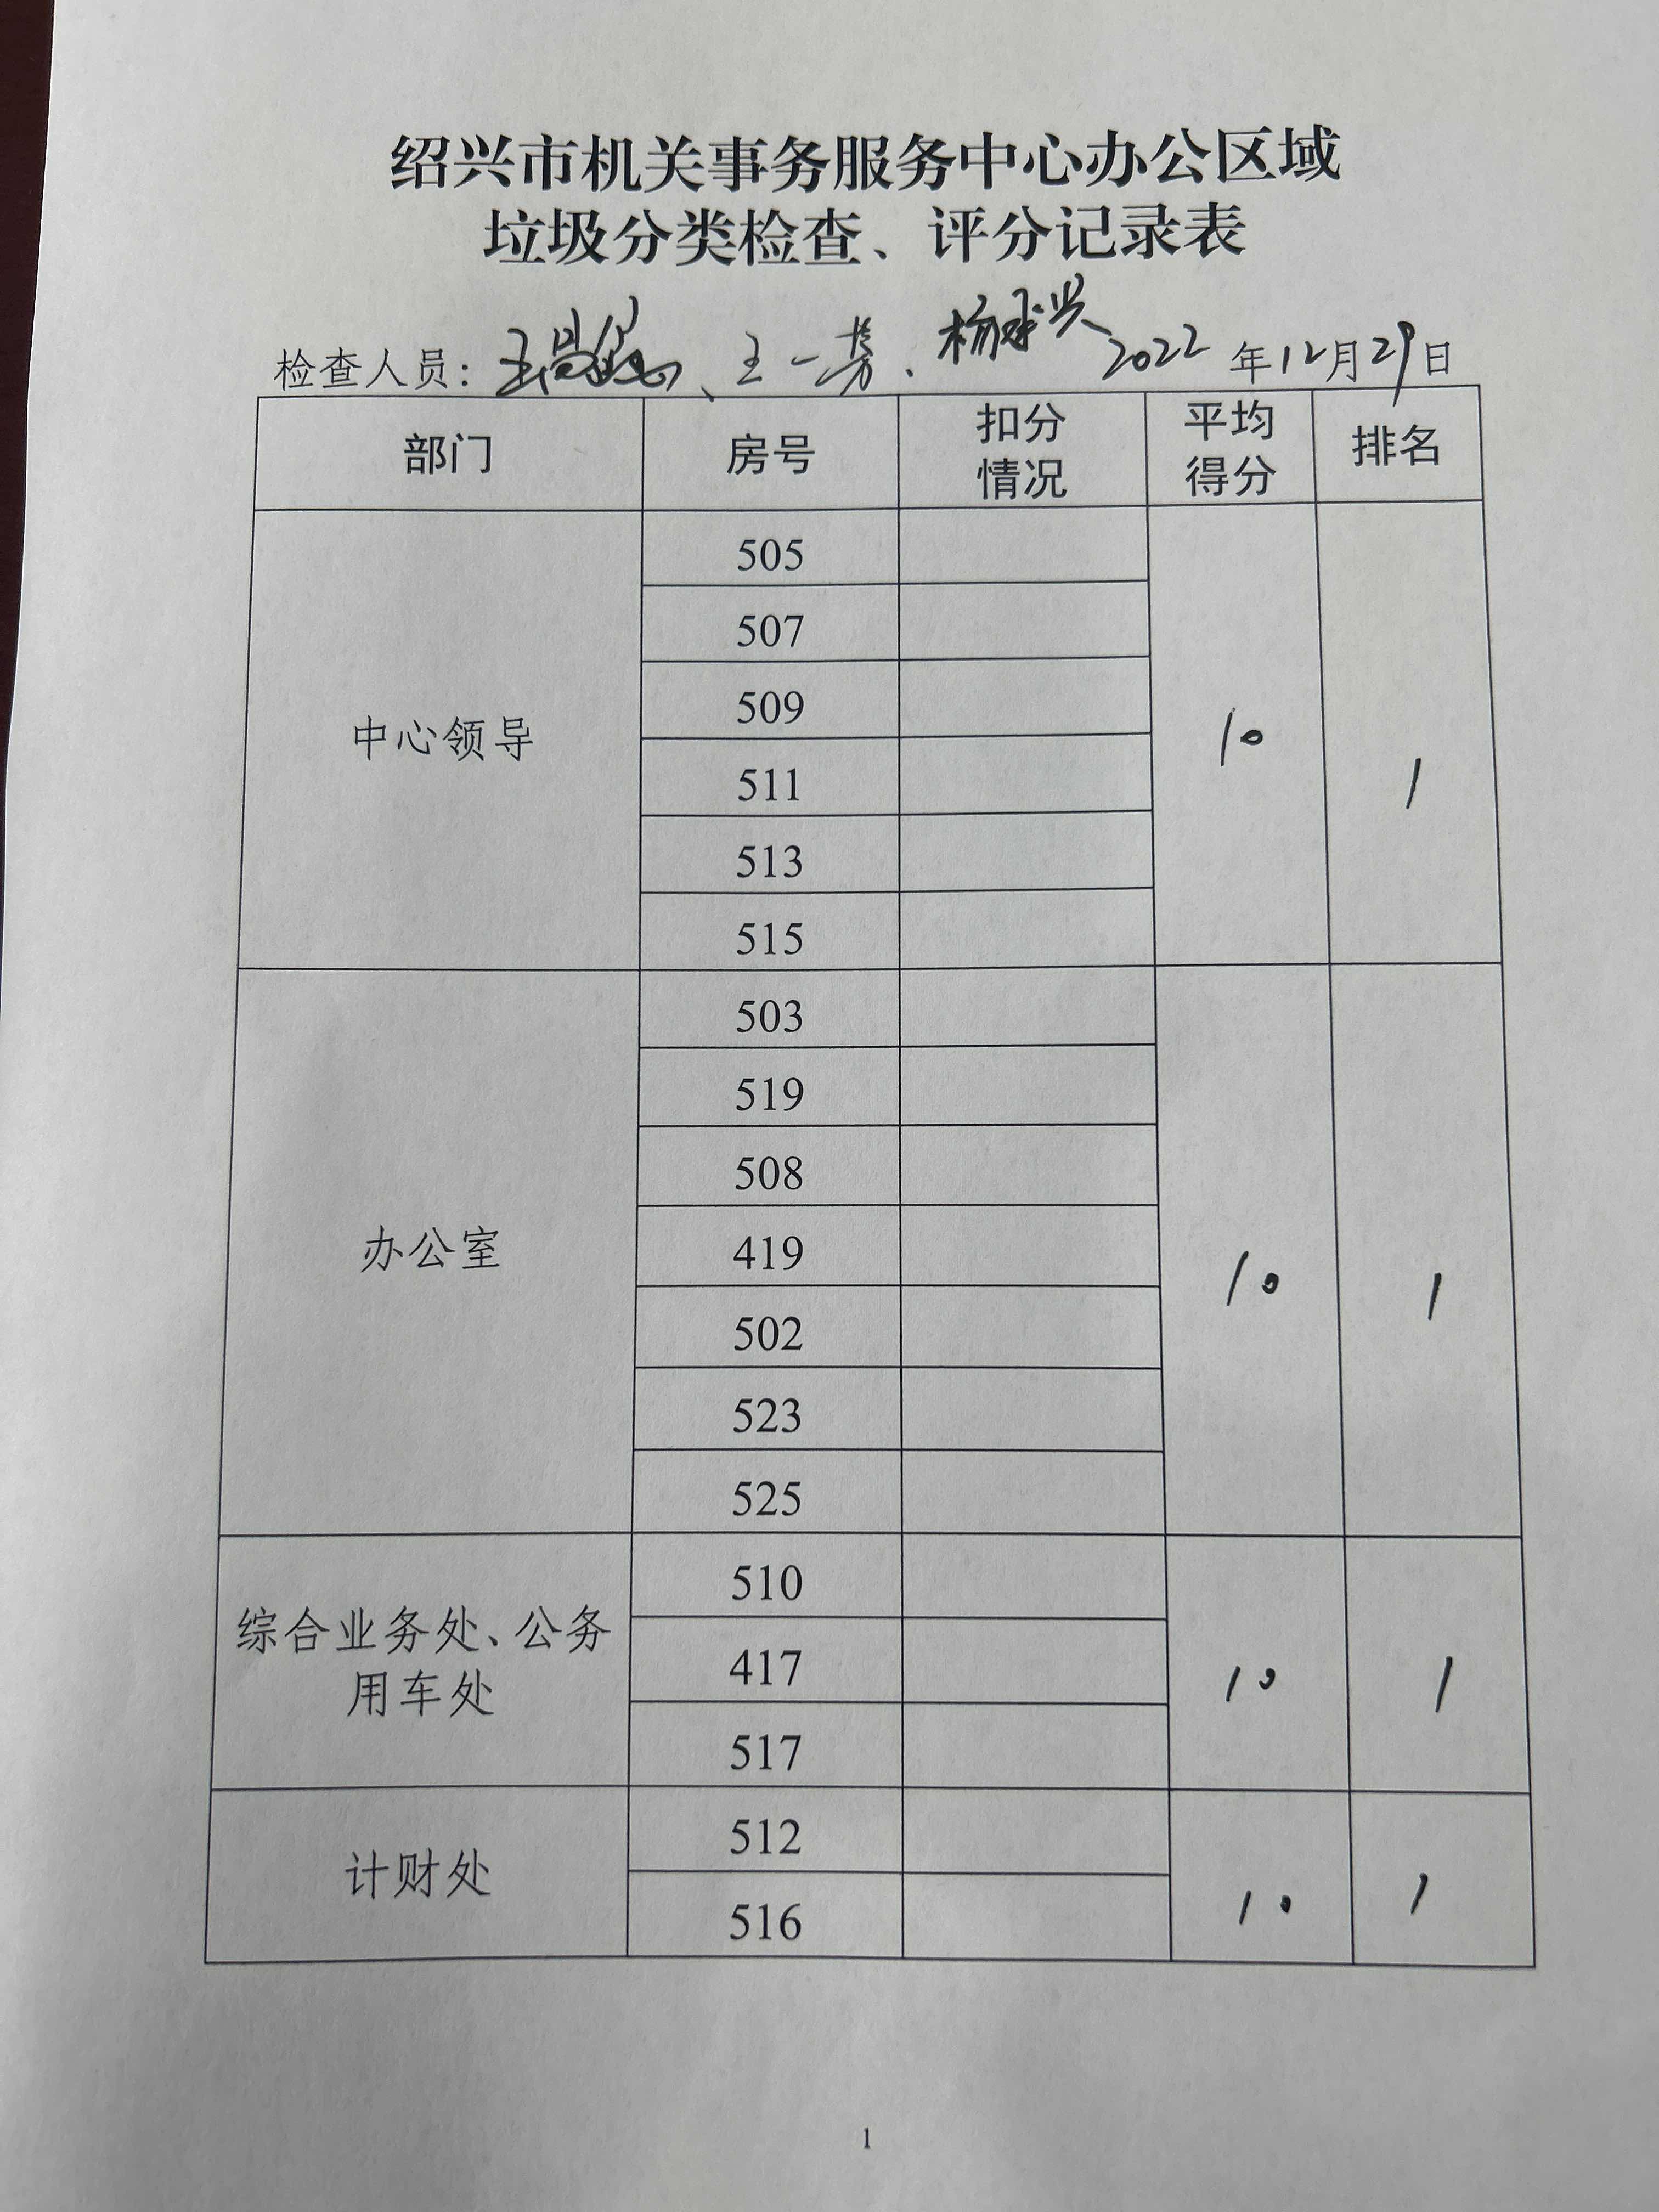 绍兴市机关事务服务中心办公区域
垃圾分类检查、评分记录表
检查人员： 、王一芳、杨 兴 2022 年12月29日
部门 房号 扣分情况 平均得分 排名
中心领导 505 10 1
507
509
511
513
515
办公室 503 10 1
519
508
419
502
523
525
综合业务处、公务用车处 510 10 1
417
517
计财处 512 10 1
516
1